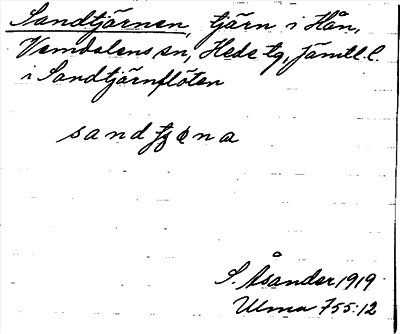 Sandtjärnen, tjärn i Hån,
Vemdalens sn, Hede tg, Jämtl. l.
i Sandtjärnflöten
sandtjøna
S. Åsander 1919
Ulma 755:12